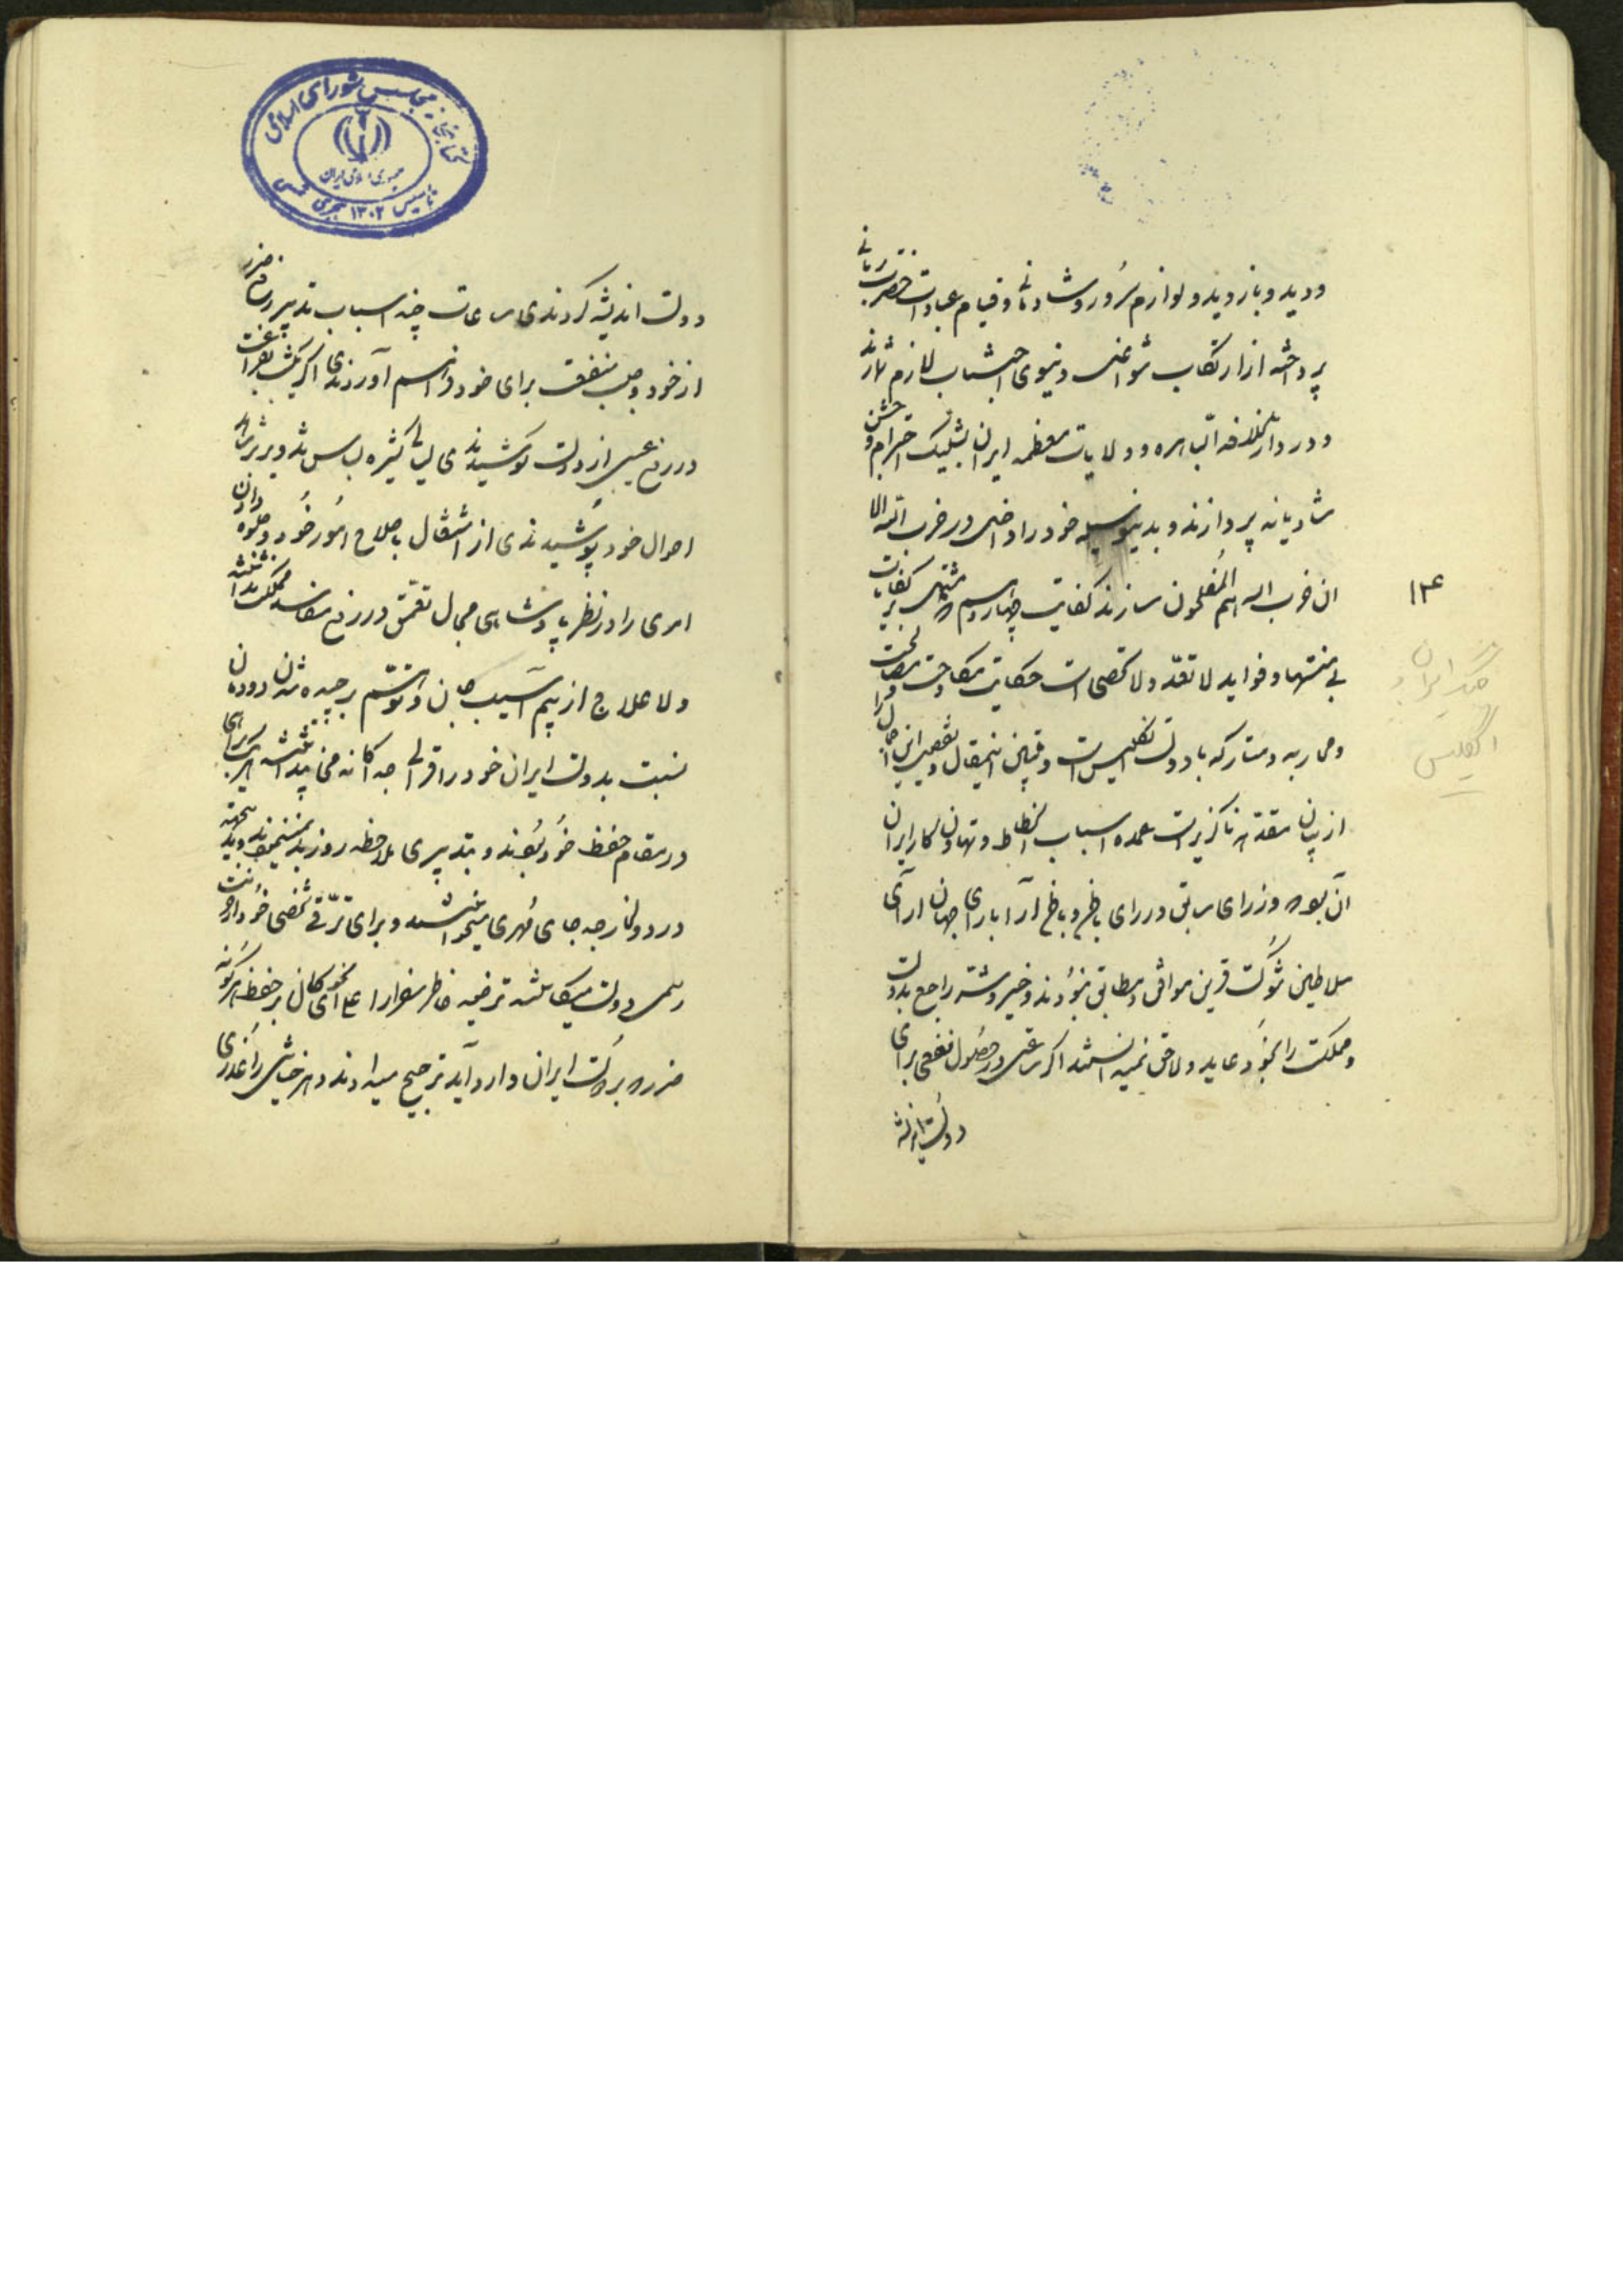 ودید و بازدید و لوازم سرور و شادمانی و قیام عبادات حضرت ربانی
پرداخته از ارتکاب شواغل دنیوی اجتناب لازم شمارند
و در دارالخلافه الباهره و ولایات معظمه ایران بشلیک احترام و جشن
شادیانه پردازند و بدینوسیله خود را داخل در حزب الله الا
ان حزب الله هم المفلحون سازند کفایت چهاردهم که مشتمل بر کفایات
بی منتها و فواید لا تعد و لا تحصی است حکایت مکاوحت و مصالحت
و محاربه و متارکه با دولت انگلیس است و قبل از تفصیل این
از بیان مقدمه ناگزیر است عمده اسباب انحطاط و تهاون کار ایران
آن بود که وزرای سابق در رای باطن و باطن آرا با رای جهان آرای
سلاطین شوکت قرین موافق و مطابق نبودند و خیر و شر راجع بدولت
و مملکت را بخود عاید و لاحق نمیدانستند اگر ساعتی در حصول نفعی برای
دولت اندیشه
۱۴
جنگ ایران و
انگلیس
کتابخانه مجلس شورای اسلامی
جمهوری اسلامی ایران
تاسیس ۱۳۰۲ هجری شمسی
دولت اندیشه کردندی ساعات چند اسباب تدبیر دفع ضرر
از خود و جلب منفعت برای خود فراهم آوردندی اگر یکشب بفراغت
در رفع عیبی از دولت کوشیدندی لیالی کثیره لباس تدویر بر
احوال خود پوشیدندی از اشتغال باصلاح امور خود و جلوه دادن
امری را در نظر پادشاهی مجال تعمق در رفع مفاسد مملکت نداشتند
ولا علاج از بیم آسیب جان و توهم برچیده شدن دودمان
نسبت بدولت ایران خود را قرالی جداگانه می پنداشتند
در مقام حفظ خود بودند و تدبیری بملاحظه روز بد
در دول خارجه جای مهری میخواستند و برای ترقی شخصی خود
رسمی دولت میکاستند ترضیه خاطر سفرا را علی ای نحو کان بر حفظ هرگونه
ضرر که بدولت ایران وارد آید ترجیح میدادند و هر خیانتی را عذری